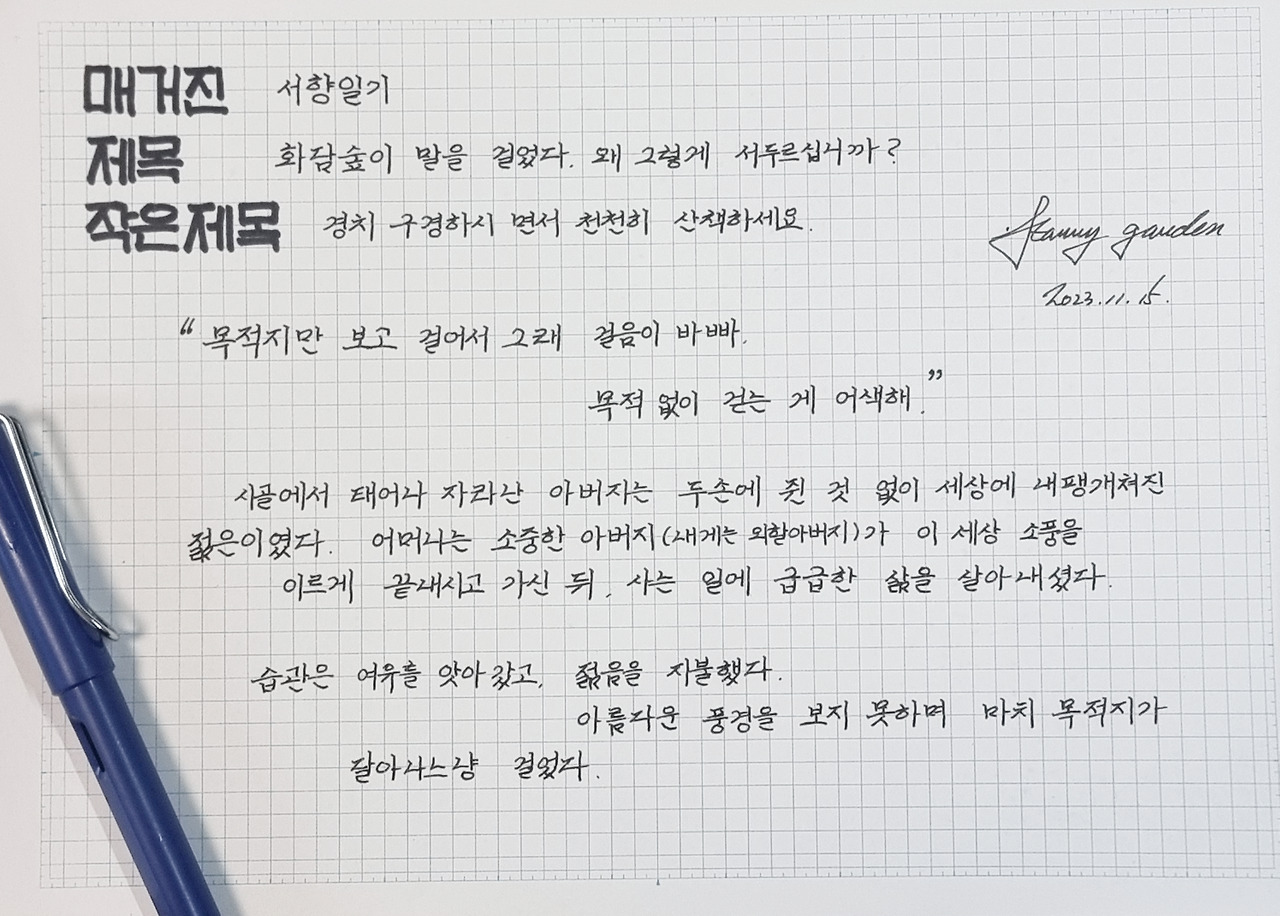 매거진 서향일기
제목 화담숲이 말을 걸었다. 왜 그렇게 서두르십니까?
작은제목 경치 구경하시면서 천천히 산책하세요.
garden
2023.11.15.
“목적지만 보고 걸어서 그래 걸음이 바빠.
목적 없이 걷는 게 어색해.”
시골에서 태어나 자라난 아버지는 두손에 쥔 것 없이 세상에 내팽개쳐진
젊은이였다. 어머니는 소중한 아버지(내게는 외할아버지)가 이 세상 소풍을
이르게 끝내시고 가신 뒤, 사는 일에 급급한 삶을 살아내셨다.
습관은 여유를 앗아갔고, 젊음을 지불했다.
아름다운 풍경을 보지 못하며 마치 목적지가
달아나느냥 걸었다.